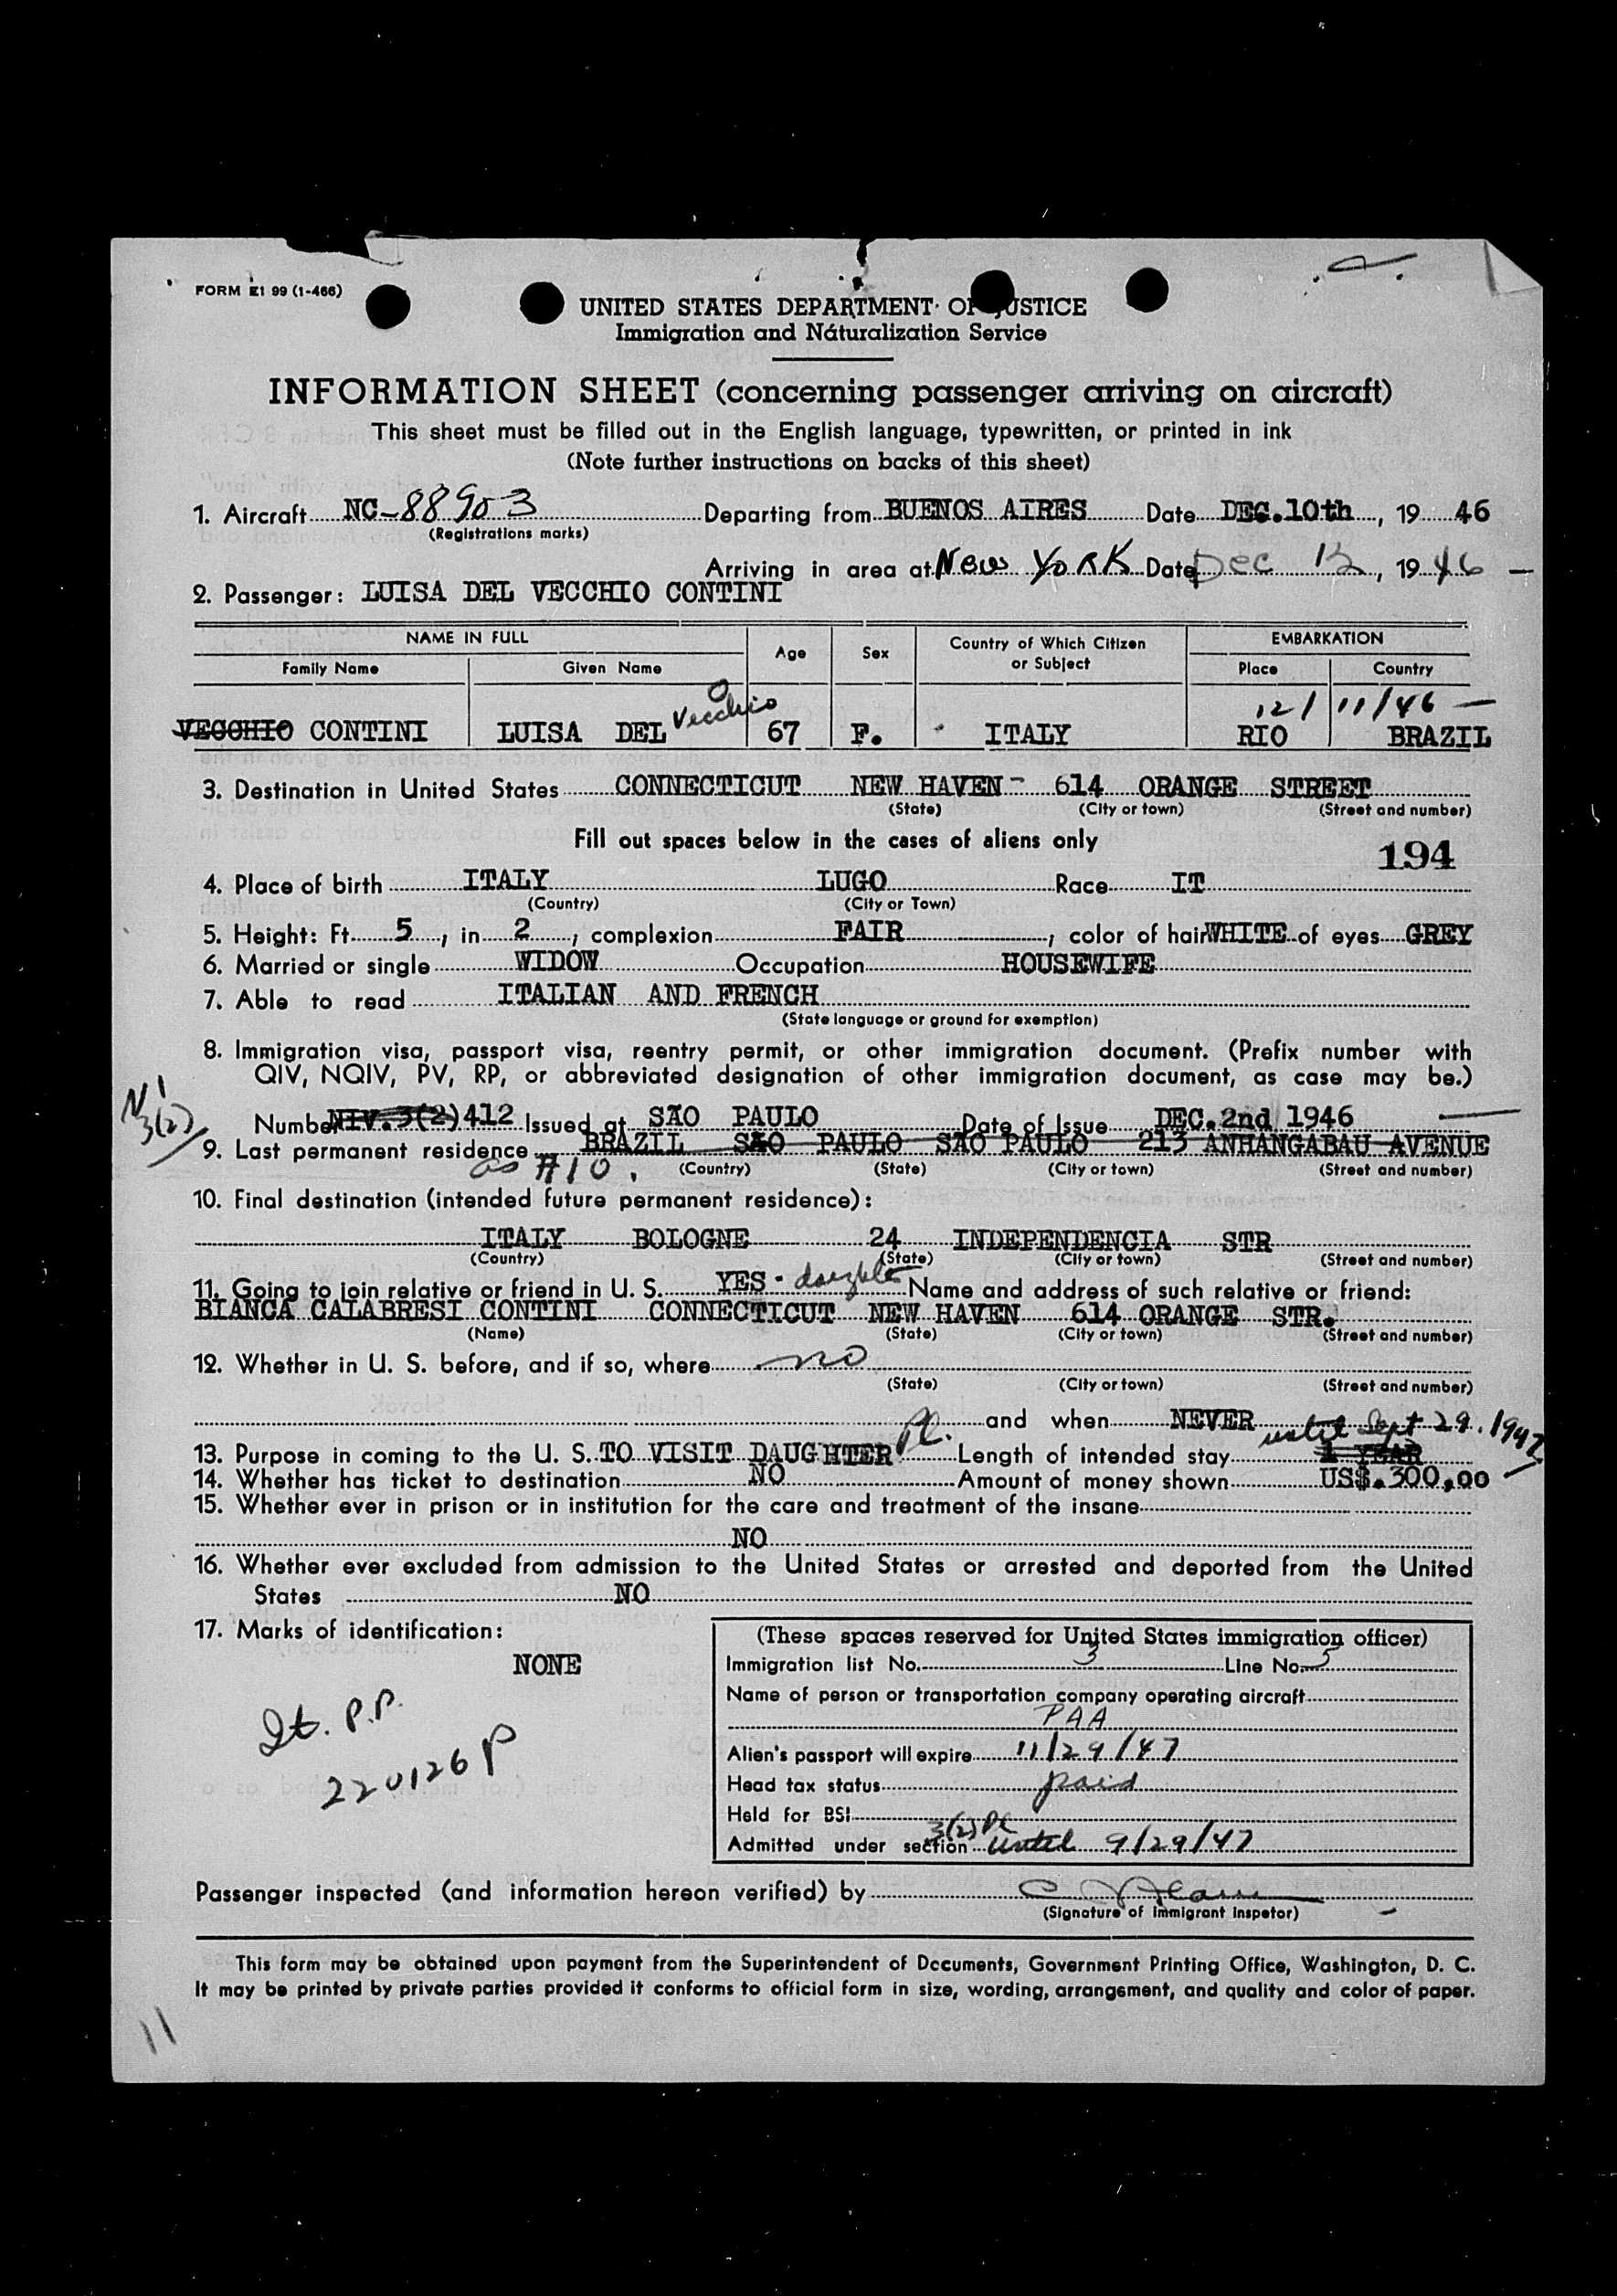 FORM I 99 (1-466)
UNITED STATES DEPARTMENT OF JUSTICE
Immigration and Naturalization Service
INFORMATION SHEET (concerning passenger arriving on aircraft)
This sheet must be filled out in the English language, typewritten, or printed in ink
(Note further instructions on backs of this sheet)
1. Aircraft NC-88903 Departing from BUENOS AIRES Date DEC.10th, 19 46
(Registrations marks)
Arriving in area at New YORK Date Dec 12, 19 46 —
2. Passenger: LUISA DEL VECCHIO CONTINI
NAME IN FULL Age Sex Country of Which Citizen or Subject EMBARKATION
Family Name Given Name Place Country
12/11/46 —
VECCHIO CONTINI LUISA DEL Vecchio 67 F. ITALY RIO BRAZIL
3. Destination in United States CONNECTICUT NEW HAVEN - 614 ORANGE STREET
(State) (City or town) (Street and number)
Fill out spaces below in the cases of aliens only
194
4. Place of birth ITALY LUGO Race IT
(Country) (City or Town)
5. Height: Ft. 5, in 2, complexion FAIR, color of hair WHITE of eyes GREY
6. Married or single WIDOW Occupation HOUSEWIFE
7. Able to read ITALIAN AND FRENCH
(State language or ground for exemption)
8. Immigration visa, passport visa, reentry permit, or other immigration document. (Prefix number with
QIV, NQIV, PV, RP, or abbreviated designation of other immigration document, as case may be.)
3(2)
Number NIV.3(2)412 Issued at SÃO PAULO Date of Issue DEC.2nd 1946
9. Last permanent residence BRAZIL SÃO PAULO SÃO PAULO 213 ANHANGABAU AVENUE
as #10. (Country) (State) (City or town) (Street and number)
10. Final destination (intended future permanent residence):
ITALY BOLOGNE 24 INDEPENDENCIA STR
(Country) (State) (City or town) (Street and number)
11. Going to join relative or friend in U. S. YES - daughter Name and address of such relative or friend:
BIANCA CALABRESI CONTINI CONNECTICUT NEW HAVEN 614 ORANGE STR.
(Name) (State) (City or town) (Street and number)
12. Whether in U. S. before, and if so, where no
(State) (City or town) (Street and number)
and when NEVER
until Sept 29, 1947
13. Purpose in coming to the U. S. TO VISIT DAUGHTER Pl. Length of intended stay 1 YEAR
14. Whether has ticket to destination NO Amount of money shown US$.300,00
15. Whether ever in prison or in institution for the care and treatment of the insane
NO
16. Whether ever excluded from admission to the United States or arrested and deported from the United
States NO
17. Marks of identification:
NONE
It. P.P.
220126 P
(These spaces reserved for United States immigration officer)
Immigration list No. 3 Line No. 5
Name of person or transportation company operating aircraft
PAA
Alien's passport will expire 11/29/47
Head tax status paid
Held for BSI
Admitted under section 3(2) Pl until 9/29/47
Passenger inspected (and information hereon verified) by
(Signature of Immigrant Inspetor)
This form may be obtained upon payment from the Superintendent of Documents, Government Printing Office, Washington, D. C.
It may be printed by private parties provided it conforms to official form in size, wording, arrangement, and quality and color of paper.
11